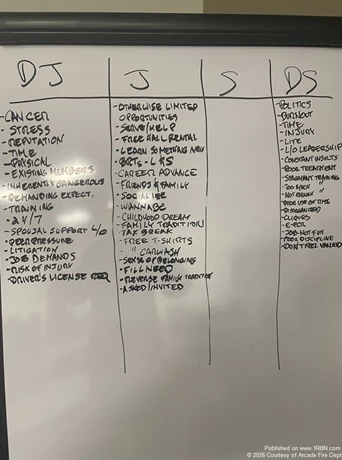 DJ
J
S
DS
-CANCER
-STRESS
-REPUTATION
-TIME
-PHYSICAL
-EXISTING MEMBERS
-INHERENTLY DANGEROUS
-DEMANDING EXPECT.
-TRAINING
-24/7
-SPOUSAL SUPPORT
-PEER PRESSURE
-LITIGATION
-JOB DEMANDS
-RISK OF INJURY
-DRIVER'S LICENSE REQ
-OTHERWISE LIMITED
OPPORTUNITIES
-SERVE/HELP
-FREE HALL RENTAL
-LEARN SOMETHING NEW
-CAREER ADVANCE
-FRIENDS & FAMILY
-SOCIAL LIFE
-WANNABE
-CHILDHOOD DREAM
-FAMILY TRADITION
-TAX BREAK
-FREE T-SHIRTS
-" CARWASH
-SENSE OF BELONGING
-FILL NEED
-REVERSE FAMILY TRADITION
-ASKED/INVITED
-POLITICS
-BURNOUT
-TIME
-INJURY
-LIFE
-L/O LEADERSHIP
-CONSTANT INSULTS
-POOR TREATMENT
-STAGNANT TRAINING
-TOO MUCH "
-NOT ENOUGH "
-POOR USE OF TIME
-DISORGANIZED
-CLIQUES
-JOB-NOT FUN
-POOR DISCIPLINE
-DON'T FEEL VALUED
Published on www.1RBN.com
© 2026 Courtesy of Arcade Fire Dept